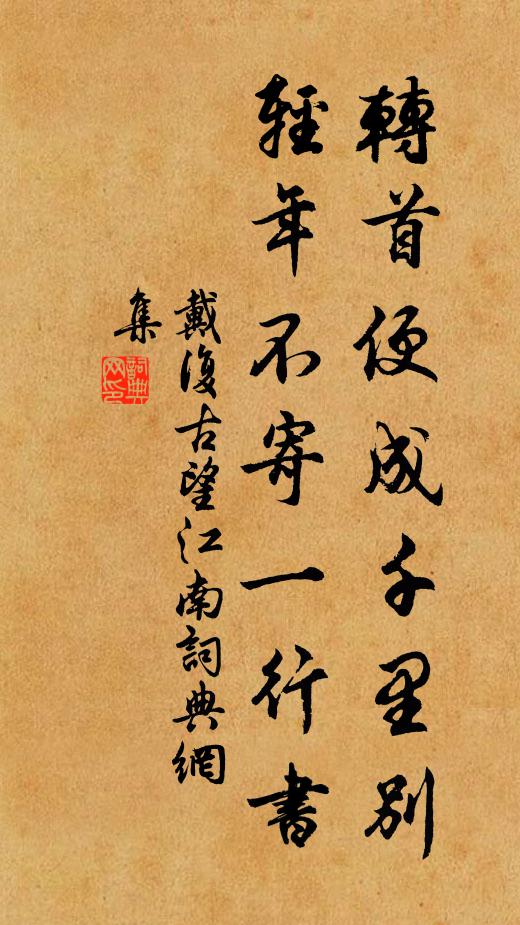 轉首便成千里別
輕年不寄一行書
戴復古望江南詞典網
集
詞典
网印